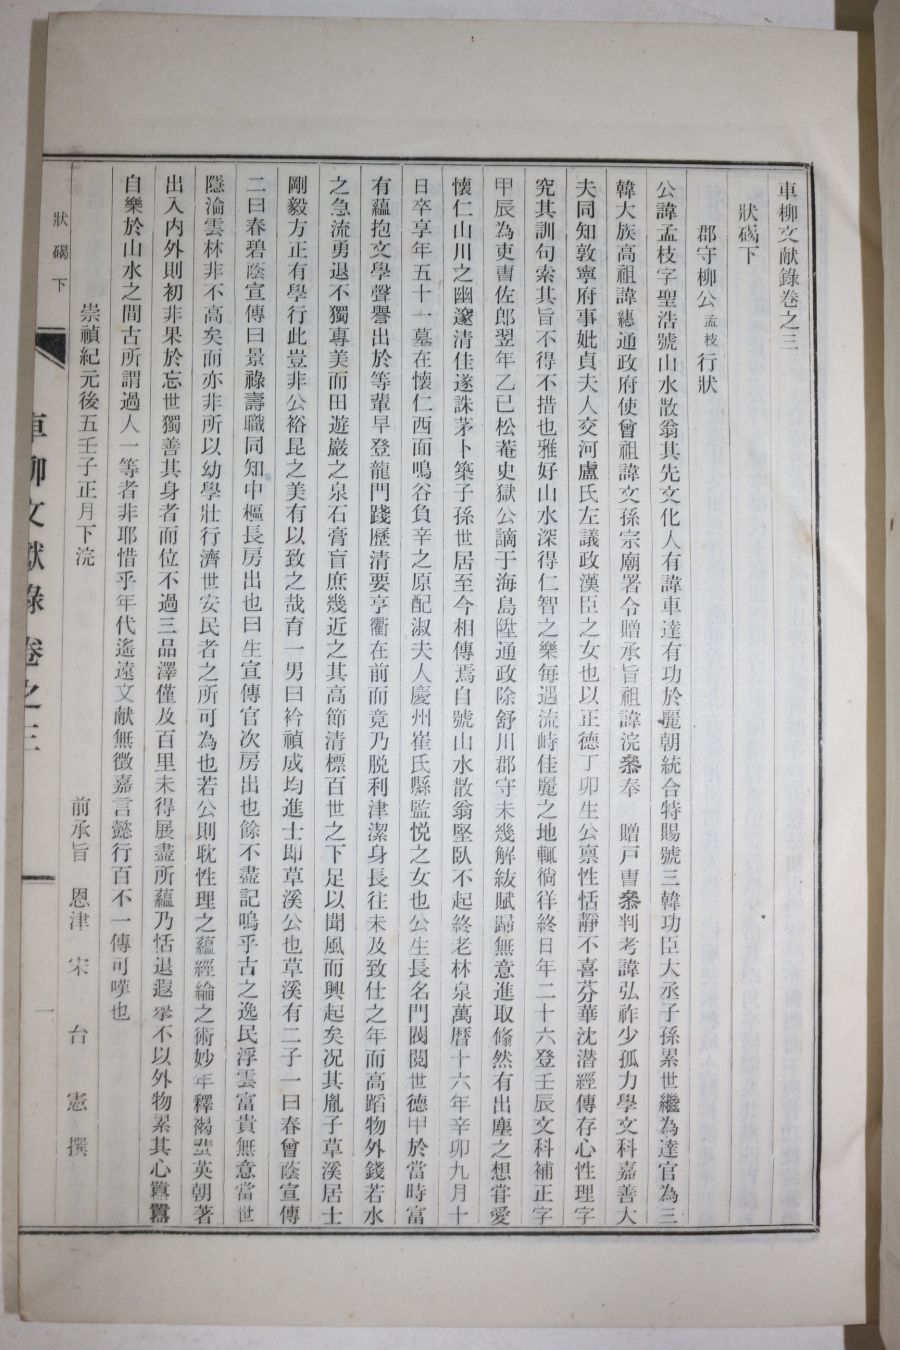 車柳文献錄卷之三
狀碣下
郡守柳公孟枝行狀
公諱孟枝字聖浩號山水散翁其先文化人有諱車達有功於麗朝統合特賜號三韓功臣大丞子孫累世繼為達官為三
韓大族高祖諱繐通政府使曾祖諱文孫宗廟署令贈承旨祖諱浣叅奉 贈戶曺叅判考諱弘祚少孤力學文科嘉善大
夫同知敦寧府事妣貞夫人交河盧氏左議政漢臣之女也以正德丁卯生公禀性恬靜不喜芬華沈潜經傳存心性理字
究其訓句索其旨不得不措也雅好山水深得仁智之樂每遇流峙佳麗之地輒徜徉終日年二十六登壬辰文科補正字
甲辰為吏曺佐郎翌年乙巳松菴史獄公謫于海島陞通政除舒川郡守未幾解紱賦歸無意進取翛然有出塵之想甞愛
懷仁山川之幽邃清佳遂誅茅卜築子孫世居至今相傳焉自號山水散翁堅臥不起終老林泉萬曆十六年辛卯九月十
日卒享年五十一墓在懷仁西面鳴谷負辛之原配淑夫人慶州崔氏縣監悅之女也公生長名門閥閱世德甲於當時富
有蘊抱文學聲譽出於等輩早登龍門踐歷清要亨衢在前而竟乃脫利津潔身長往未及致仕之年而高蹈物外錢若水
之急流勇退不獨專美而田遊巖之泉石膏盲庶幾近之其高節清標百世之下足以聞風而興起矣况其胤子草溪居士
剛毅方正有學行此豈非公裕昆之美有以致之哉育一男曰衿禎成均進士即草溪公也草溪有二子一曰春曾蔭宣傳
二曰春碧蔭宣傳曰景祿壽職同知中樞長房出也曰生宣傳官次房出也餘不盡記嗚乎古之逸民浮雲富貴無意當世
隱淪雲林非不高矣而亦非所以幼學壯行濟世安民者之所可為也若公則耽性理之蘊經綸之術妙年釋褐蜚英朝著
出入內外則初非果於忘世獨善其身者而位不過三品澤僅及百里未得展盡所蘊乃恬退遐擧不以外物累其心囂囂
自樂於山水之間古所謂過人一等者非耶惜乎年代遙遠文献無徵嘉言懿行百不一傳可嘆也
崇禎紀元後五壬子正月下浣
前承旨 恩津 宋 台 憲 撰
狀碣下
車柳文獻錄卷之三
一